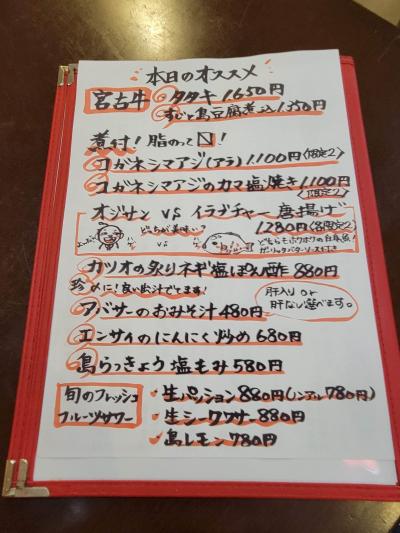 本日のオススメ
宮古牛 タタキ 1650円
すじと島豆腐煮込 1,350円
煮付!脂のって〼!
コガネシマアジ(アラ)1,100円〈限定2〉
コガネシマアジのカマ塩焼き 1,100円
〈限定2〉
オジサン VS イラブチャー 唐揚げ
どちらが美味い?
1280円〈各限定2〉
VS
どちらもホクホクの白身魚!
ガーリックバターソース
カツオの炙りネギ塩ぽん酢 880円
珍 かに!良い出汁でてます!
肝入り or
肝なし選べます。
アバサーのおみそ汁 480円
エンサイのにんにく炒め 680円
島らっきょう塩もみ 580円
旬のフレッシュ
フルーツサワー
生パッション 880円(ノンアル780円)
生シークワサー 880円
島レモン 780円